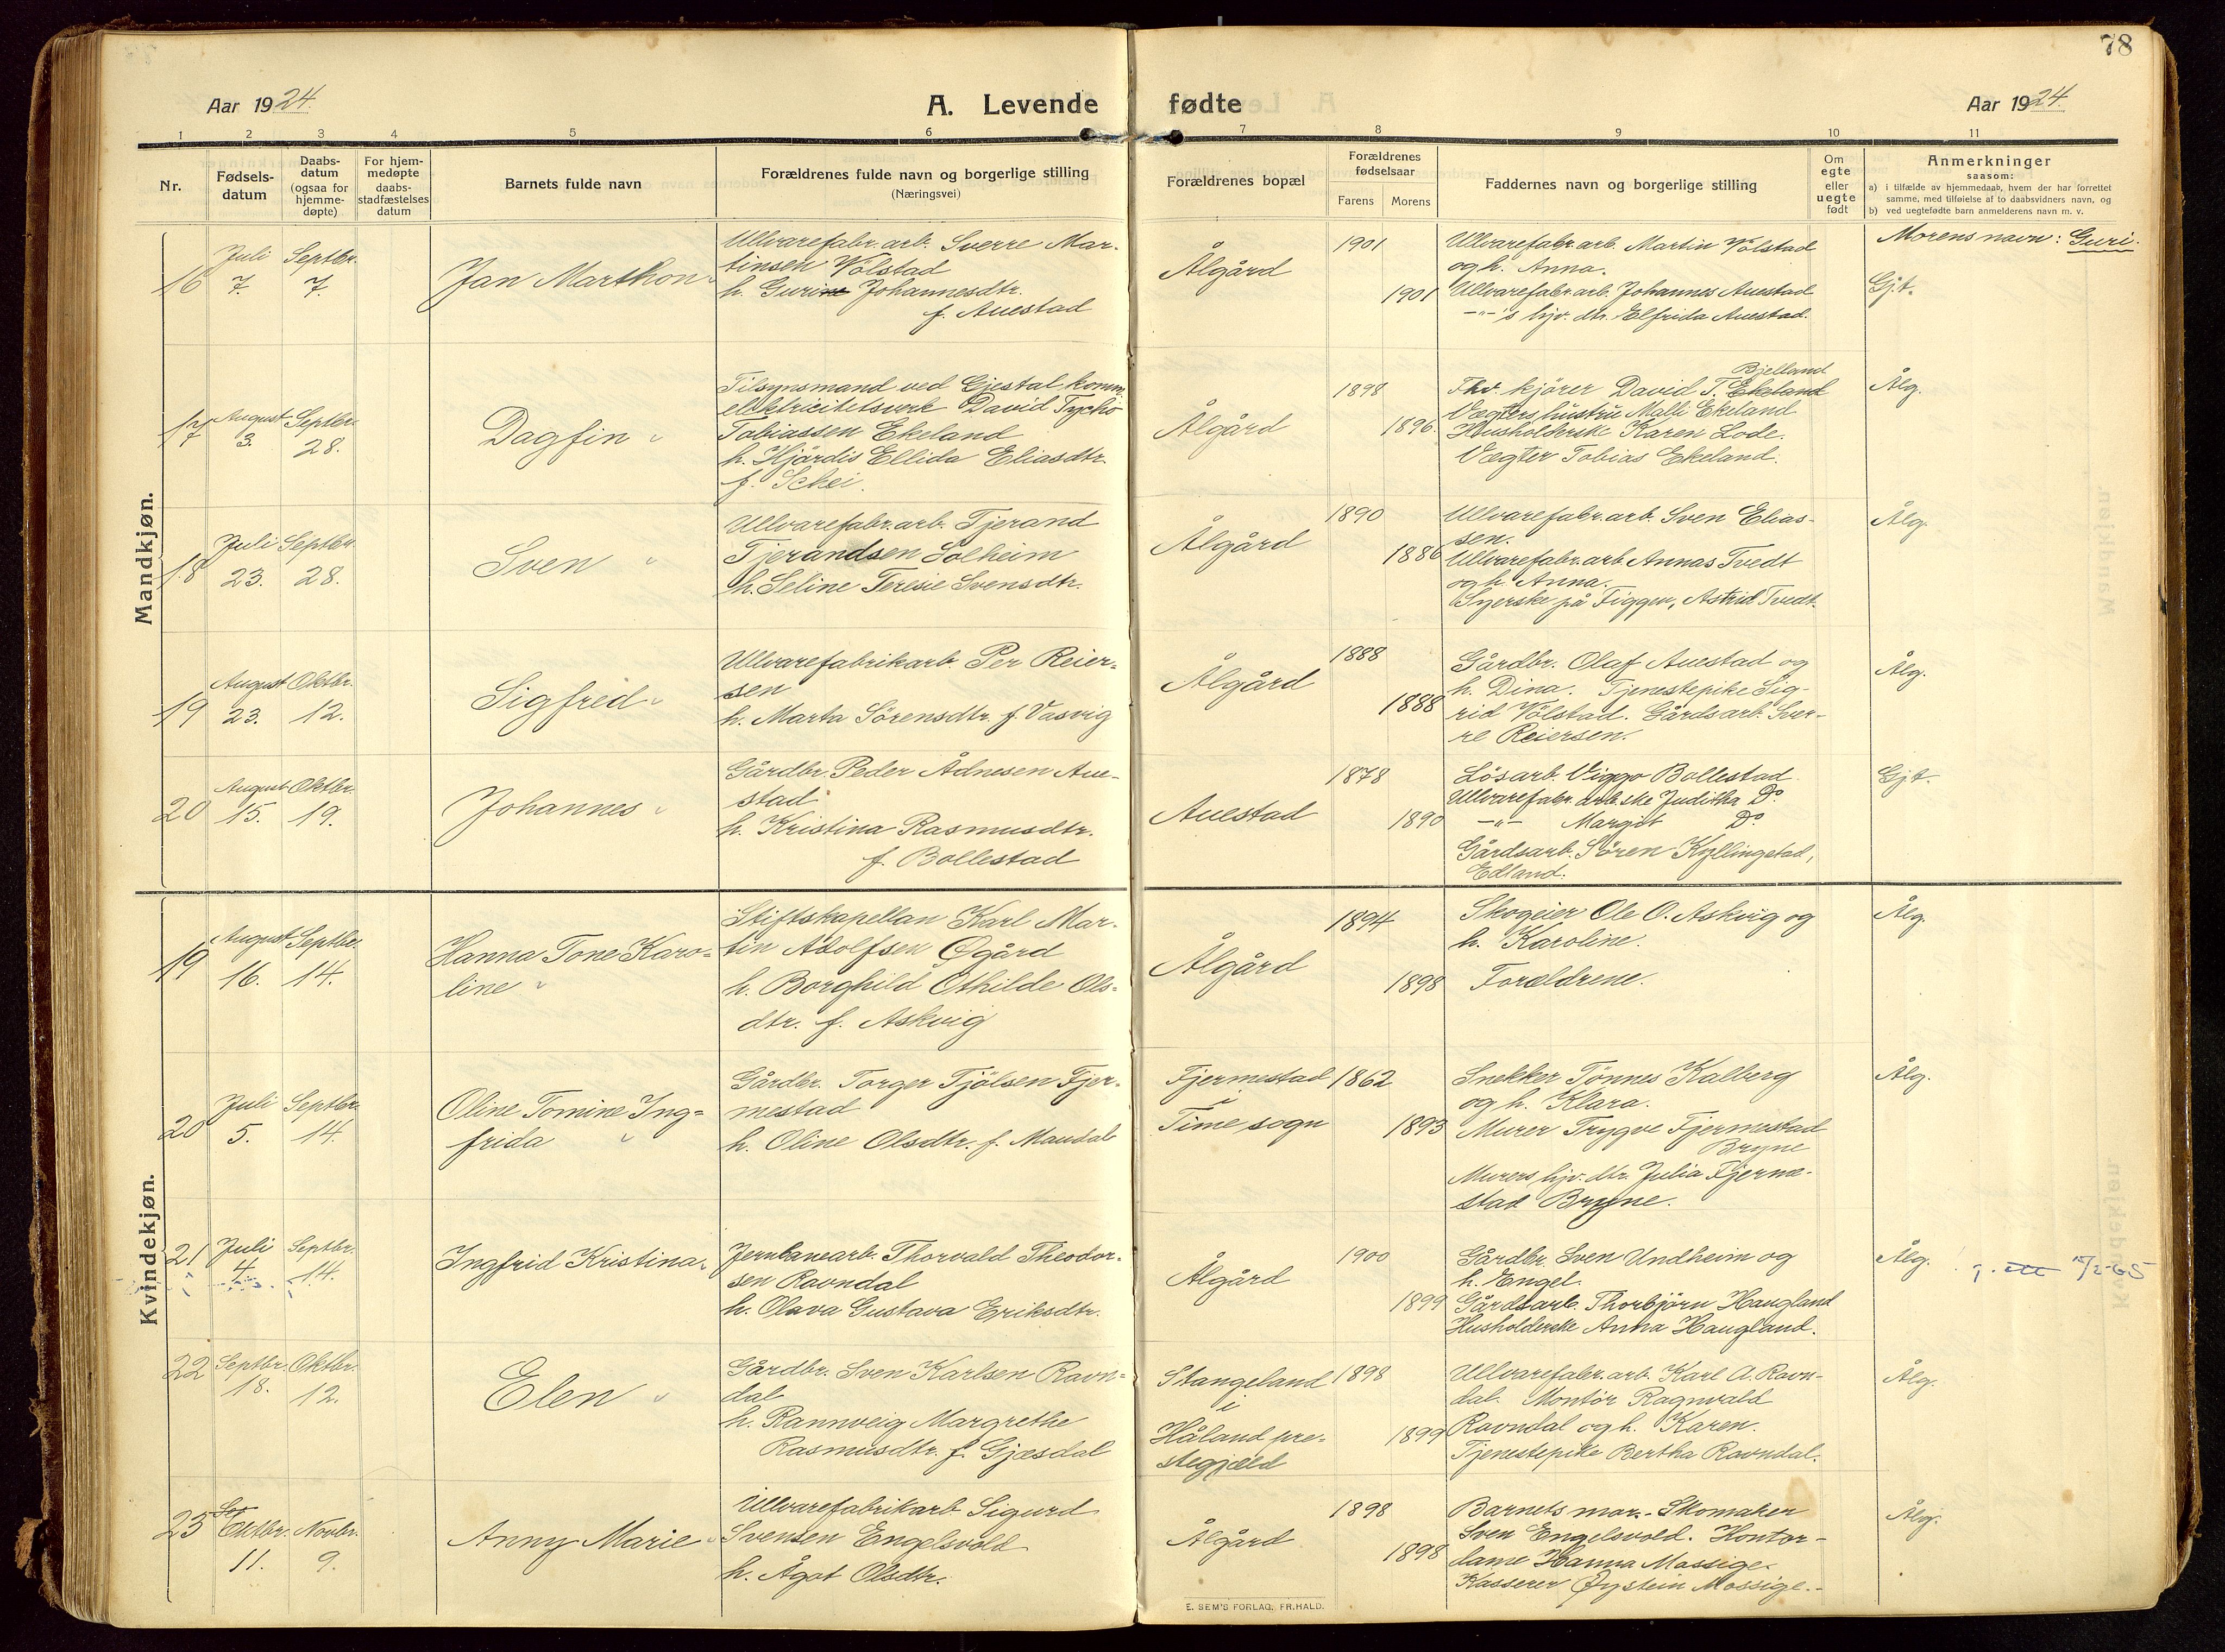 78
Aar 1924.
A. Levende fødte
Aar 1924.
1 2 3 4 5 6 7 8 9 10 11
Nr.
Fødsels-
datum
Daabs-
datum
(ogsaa for
hjemme-
døpte)
For hjem-
medøpte
daabs-
stadfæstelses
datum
Barnets fulde navn
Forældrenes fulde navn og borgerlige stilling
(Næringsvei)
Forældrenes bopæl
Forældrenes
fødselsaar
Farens Morens
Faddernes navn og borgerlige stilling
Om
egte
eller
uegte
født
Anmerkninger
saasom:
a) i tilfælde av hjemmedaab, hvem der har forrettet
samme, med tilføielse af to daabsvidners navn, og
b) ved uegtefødte barn anmelderens navn m. v.
Mandkjøn.
16
Juli
7.
Septbr.
7.
Jan Marthon
Ullvarefabr. arb. Sverre Mar-
tinsen Vølstad
h. Gurine Johannesdtr.
f. Auestad
Ålgård
1901
1901
Ullvarefabr. arb. Martin Vølstad
og h. Anna.
Ullvarefabr. arb. Johannes Auestad
—"—'s hjv. dtr. Elfrida Auestad.
Morens navn: Guri.
Gjt.
17
August
3.
Septbr.
28.
Dagfin
Tilsynsmand ved Gjestal komm.
elektricitetsverk David Tycho
Tobiassen Ekeland
h. Hjørdis Ellida Eliasdtr.
f. Schei.
Ålgård
1898
1896.
Bjelland
Fhv. kjører David T. Ekeland
Vægters hustru Malli Ekeland
Husholderske Karen Lode.
Vægter Tobias Ekeland.
Ålg.
18
Juli
23.
Septbr.
28.
Sven
Ullvarefabr. arb. Tjerand
Tjerandsen Solheim
h. Seline Teresie Svensdtr.
Ålgård
1890
1886
Ullvarefabr. arb. Sven Elias-
sen.
Ullvarefabr. arb. Annas Tvedt
og h. Anna.
Syerske på Figgen, Astrid Tvedt.
Ålg.
19
August
23.
Oktbr.
12.
Sigfred
Ullvarefabrikarb. Per Reier-
sen
h. Marta Sørensdtr. f. Vasvig
Ålgård
1888
1888
Gårdbr. Olaf Auestad og
h. Dina. Tjenestepike Sig-
rid Vølstad. Gårdsarb. Sver-
re Reiersen.
Ålg.
20
August
15.
Oktbr.
19.
Johannes
Gårdbr. Peder Ådnesen Aue-
stad
h. Kristina Rasmusdtr.
f. Bollestad
Auestad
1878
1890
Løsarb. Viggo Bollestad.
Ullvarefabr. arb.ske Juditha Do.
—"— Margit Do
Gårdsarb. Søren Kyllingstad,
Edland.
Gjt.
Kvindekjøn.
19
August
16.
Septbr.
14.
Hanna Tone Karo-
line
Stiftskapellan Karl Mar-
tin Adolfsen Øgård
h. Borghild Othilde Ols-
dtr. f. Askvig
Ålgård
1894
1898
Skogeier Ole O. Askvig og
h. Karoline.
Forældrene.
Ålg.
20
Juli
5.
Septbr.
14.
Oline Tomine Ing-
frida
Gårdbr. Torger Tjølsen Fjer-
mestad
h. Oline Olsdtr. f. Maudal
Fjermestad
i
Time sogn
1862
1893
Snekker Tønnes Kalberg
og h. Klara.
Murer Trygve Fjermestad
Bryne
Murers hjv. dtr. Julia Fjerme-
stad Bryne.
Ålg.
21
Juli
4.
Septbr.
14.
Ingfrid Kristina
Jernbanearb. Thorvald Theodor-
sen Ravndal
h. Olava Gustava Eriksdtr.
Ålgård
1900
1899
Gårdbr. Sven Undheim og
h. Engel.
Gårdsarb. Thorbjørn Haugland
Husholderske Anna Haugland.
Ålg.
22
Septbr.
18.
Oktbr.
12.
Elen
Gårdbr. Sven Karlsen Ravn-
dal
h. Rannveig Margrethe
Rasmusdtr. f. Gjesdal
Stangeland
i
Håland pre-
stegjæld
1898
1899
Ullvarefabr. arb. Karl A. Ravn-
dal. Montør Ragnvald
Ravndal og h. Karen.
Tjenestepike Bertha Ravndal.
Ålg.
23
Oktbr.
11.
Novbr.
9.
Anny Marie
Ullvarefabrikarb. Sigurd
Svensen Engelsvold
h. Ågot Olsdtr.
Ålgård
1898
1898
Barnets mor. - Skomaker
Sven Engelsvold. Kontor-
dame Hanna Mossige.
Kasserer Øystein Mossige.-
Ålg.
E. SEM'S FORLAG, FR.HALD.